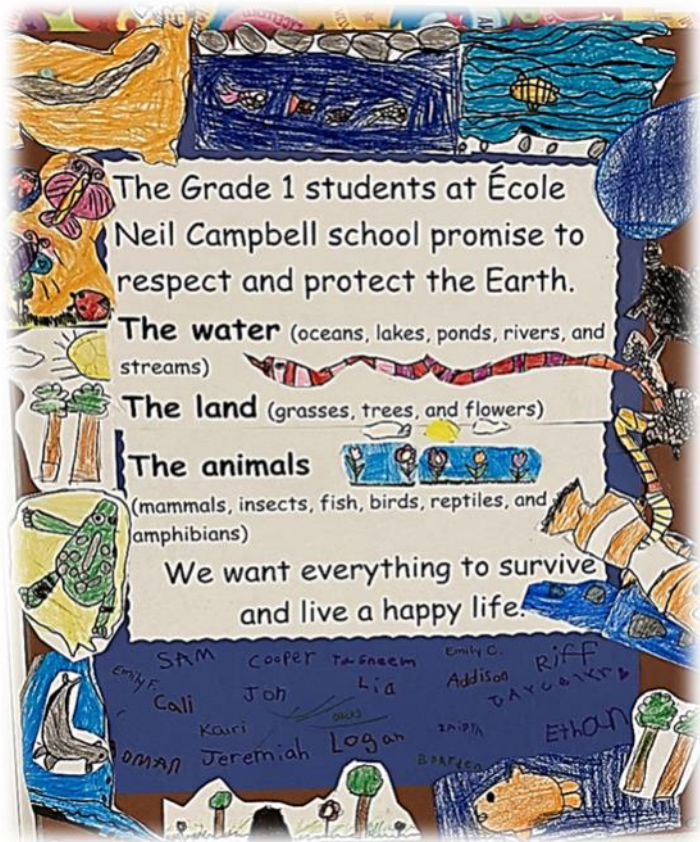 The Grade 1 students at École
Neil Campbell school promise to
respect and protect the Earth.
The water (oceans, lakes, ponds, rivers, and
streams)
The land (grasses, trees, and flowers)
The animals
(mammals, insects, fish, birds, reptiles, and
amphibians)
We want everything to survive
and live a happy life.
SAM Cooper Tasneem Emily C. Riff
Emily F. Cali Jon Lia Addison
Kairi Ethan
OMAR Jeremiah Logan